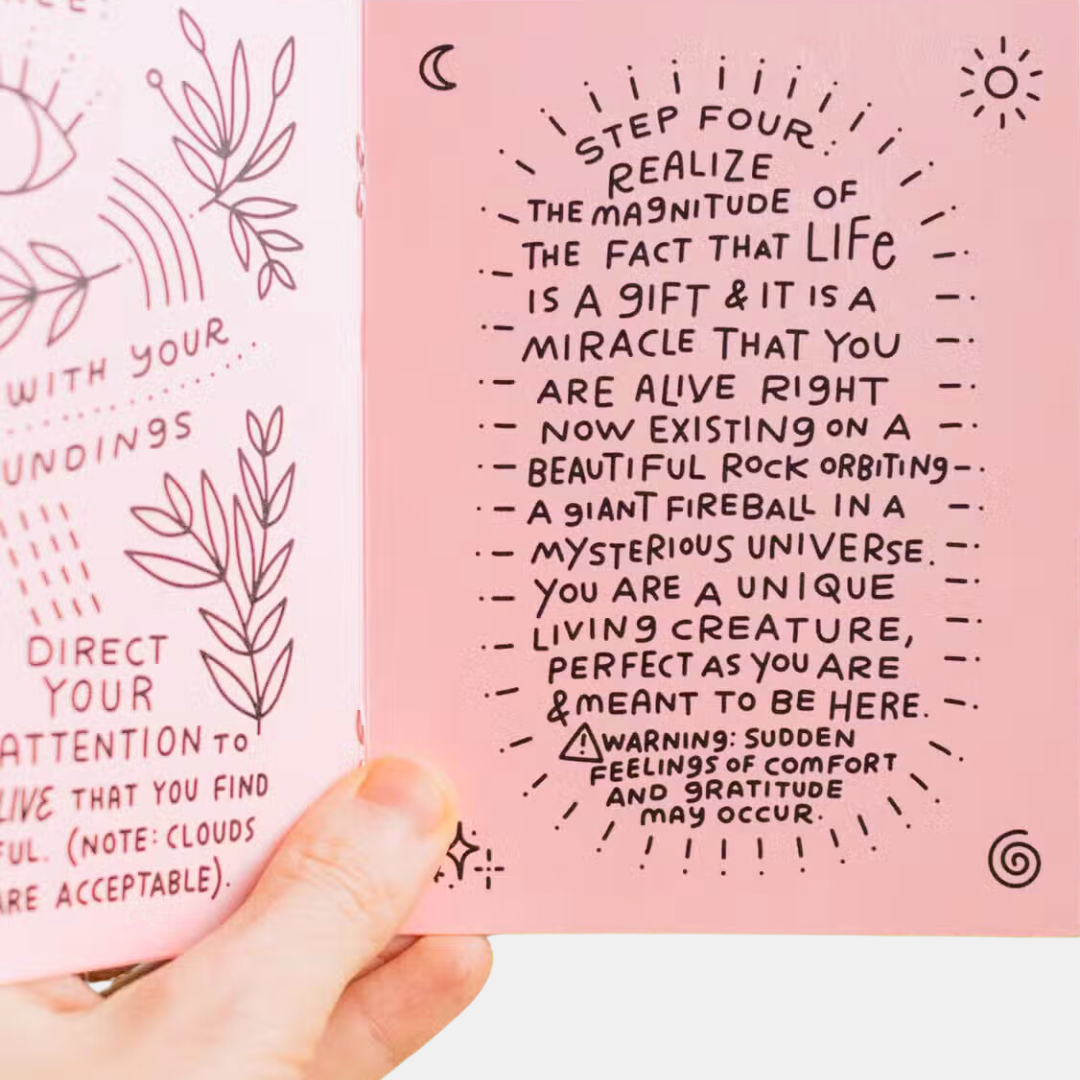 WITH YOUR
DIRECT
YOUR
ATTENTION TO
THAT YOU FIND
(NOTE: CLOUDS
ACCEPTABLE).
STEP FOUR:
REALIZE
THE MAGNITUDE OF
THE FACT THAT LIFE
IS A GIFT & IT IS A
MIRACLE THAT YOU
ARE ALIVE RIGHT
NOW EXISTING ON A
BEAUTIFUL ROCK ORBITING
A GIANT FIREBALL IN A
MYSTERIOUS UNIVERSE.
YOU ARE A UNIQUE
LIVING CREATURE,
PERFECT AS YOU ARE
& MEANT TO BE HERE.
WARNING: SUDDEN
FEELINGS OF COMFORT
AND GRATITUDE
MAY OCCUR.